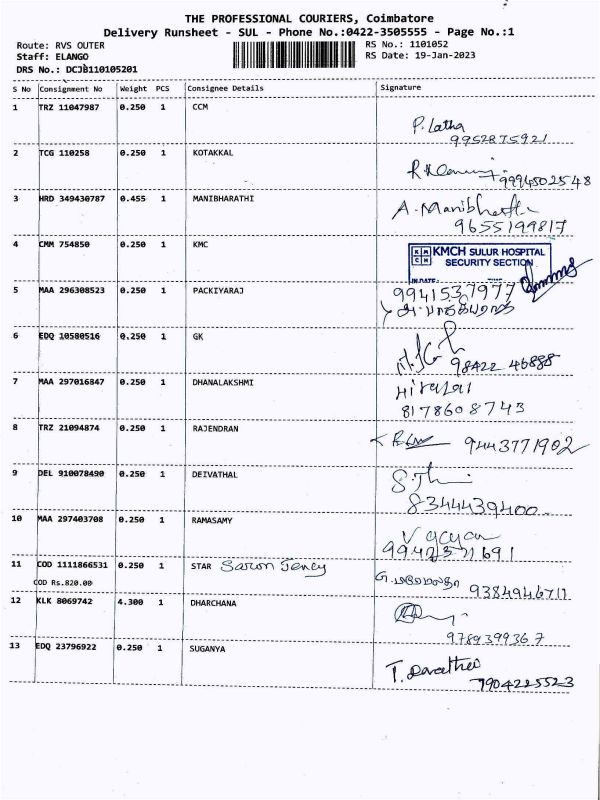 THE PROFESSIONAL COURIERS, Coimbatore
Delivery Runsheet - SUL - Phone No.:0422-3505555 - Page No.:1
Route: RVS OUTER RS No.: 1101052
Staff: ELANGO RS Date: 19-Jan-2023
DRS No.: DCJB110105201
S No Consignment No Weight PCS Consignee Details Signature
1 TRZ 11047987 0.250 1 CCM
P. Latha
9952875921
2 TCG 110258 0.250 1 KOTAKKAL
9994502548
3 HRD 349430787 0.455 1 MANIBHARATHI
A. Manibharathi
9655199817
4 CMM 754850 0.250 1 KMC
KMCH SULUR HOSPITAL
SECURITY SECTION
IN DATE:
5 MAA 296308523 0.250 1 PACKIYARAJ
9941537977
அ. பாக்கியராஜ்
6 EDQ 10580516 0.250 1 GK
98422 46888
7 MAA 297016847 0.250 1 DHANALAKSHMI
Hiralal
8178608743
8 TRZ 21094874 0.250 1 RAJENDRAN
9443771902
9 DEL 910078490 0.250 1 DEIVATHAL
8344439400
10 MAA 297403708 0.250 1 RAMASAMY
11 COD 1111866531 0.250 1 STAR Saron Jency
COD Rs.820.00
12 KLK 8069742 4.300 1 DHARCHANA
9789399367
13 EDQ 23796922 0.250 1 SUGANYA
7904225523